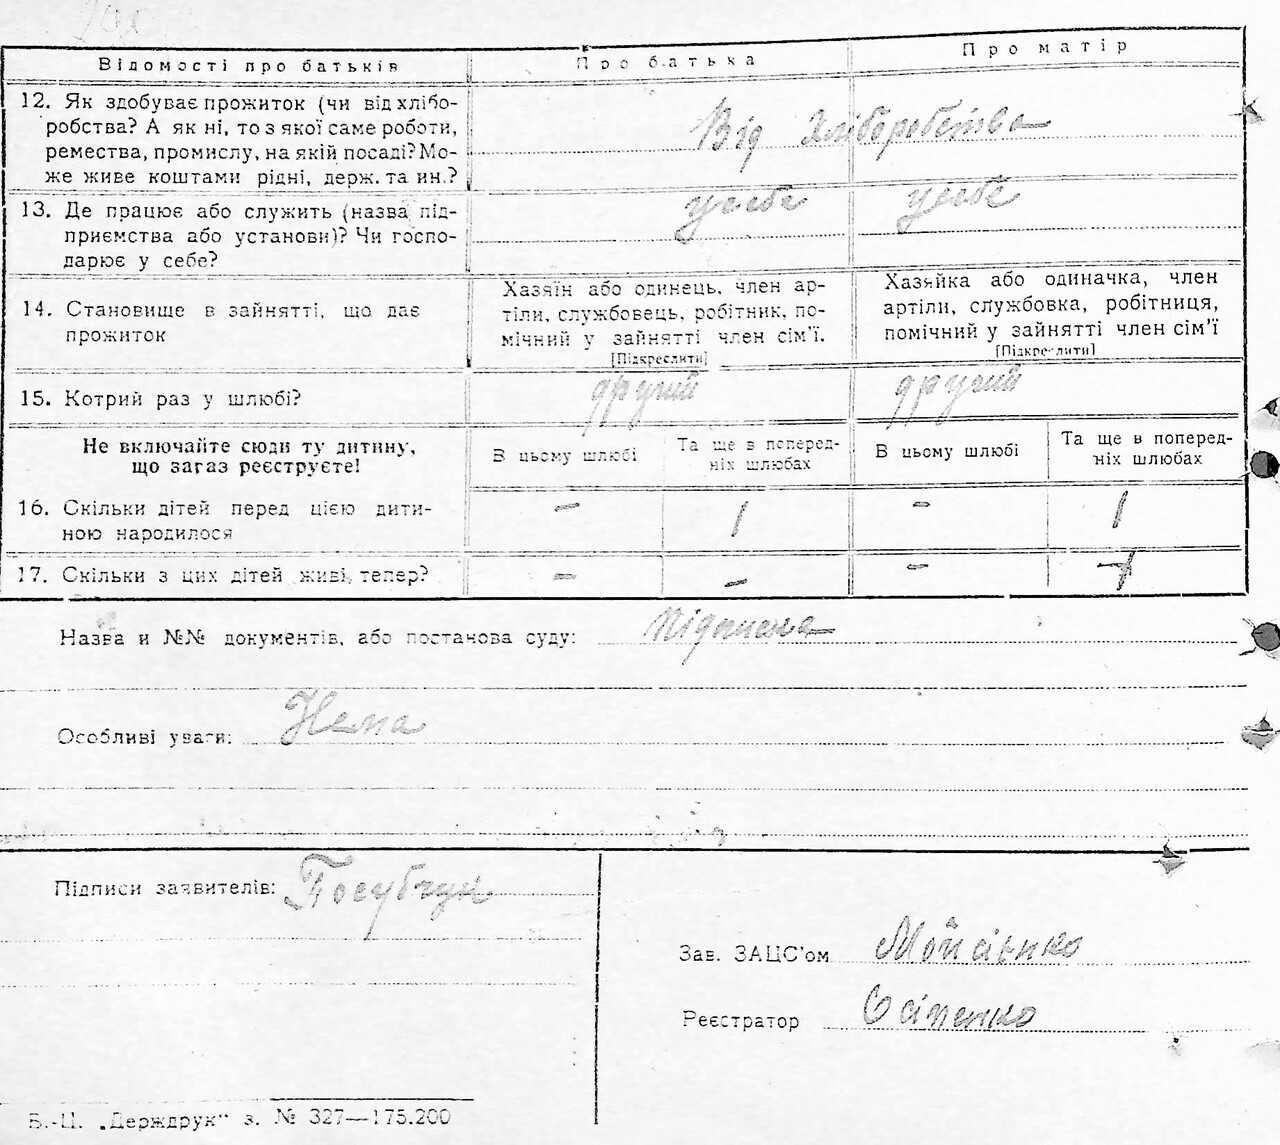 Відомості про батьків Про батька Про матір
12. Як здобуває прожиток (чи від хлібо-
робства? А як ні, то з якої саме роботи,
ремества, промислу, на якій посаді? Мо-
же живе коштами рідні, держ. та ин.?
Від хліборобства
13. Де працює або служить (назва під-
приємства або установи)? Чи госпо-
дарює у себе?
у себе у себе
14. Становище в зайнятті, що дає
прожиток
Хазяїн або одинець, член ар-
тіли, службовець, робітник, по-
мічний у зайнятті член сім'ї.
[Підкреслити]
Хазяйка або одиначка, член
артіли, службовка, робітниця,
помічний у зайнятті член сім'ї
[Підкреслити]
15. Котрий раз у шлюбі? другий другий
Не включайте сюди ту дитину,
що зараз реєструєте!
В цьому шлюбі
Та ще в поперед-
ніх шлюбах
В цьому шлюбі
Та ще в поперед-
ніх шлюбах
16. Скільки дітей перед цією дити-
ною народилося
– 1 – 1
17. Скільки з цих дітей живі тепер? – – –
Назва и №№ документів, або постанова суду: Підписка
Особливі уваги: Нема
Підписи заявителів: Посубчук
Зав. ЗАЦС'ом Мойсієнко
Реєстратор Осіпенко
Б.-Ц. „Держдрук" з. № 327—175.200